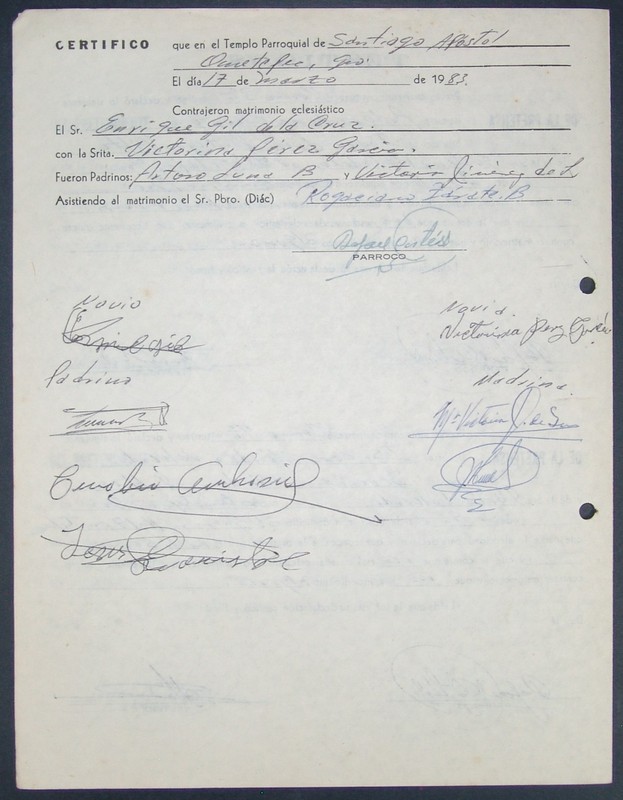 CERTIFICO que en el Templo Parroquial de Santiago Apostol
Ometepec, Gro.
El día 17 de marzo de 1983.
Contrajeron matrimonio eclesiástico
El Sr. Enrique Gil de la Cruz.
con la Srita. Victorina Pérez García.
Fueron Padrinos: Arturo Luna B y Victoria Jiménez de L
Asistiendo al matrimonio el Sr. Pbro. (Diác) Rogaciano Zárate B
Rafael Cortés
PARROCO
Novio Novia.
Victorina Perez García
Padrino Madrina.
Ma Victoria J. de